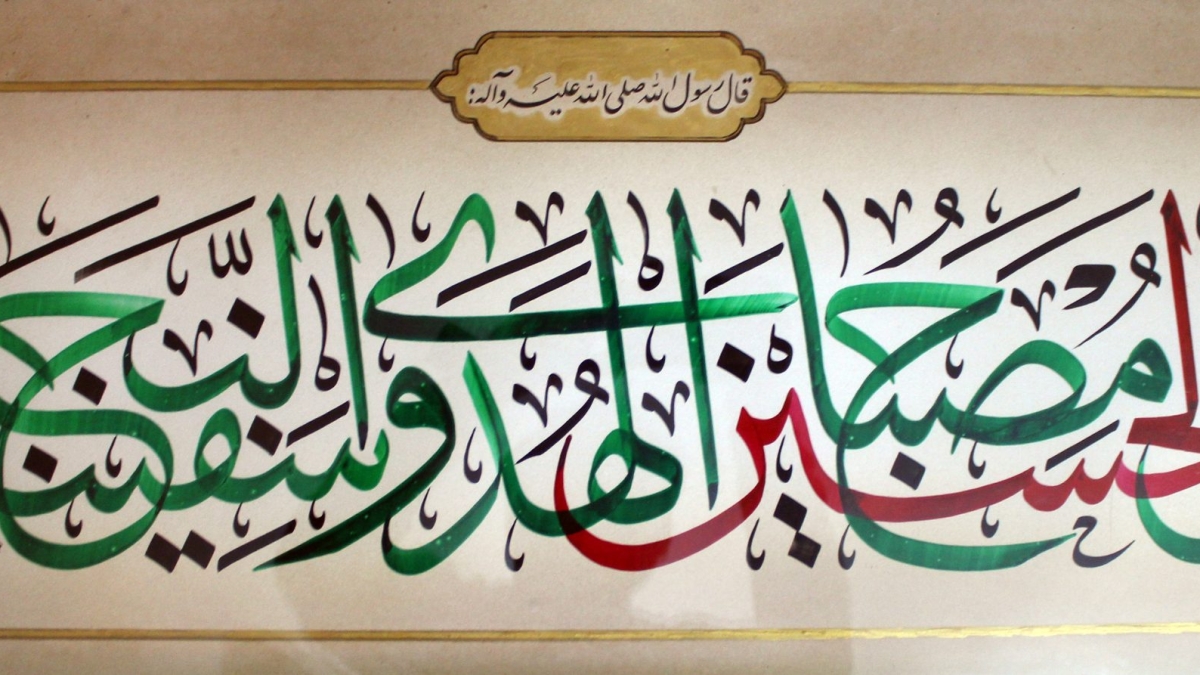 قال رسول الله صلی الله علیه وآله:
الحسين مصباح الهدى وسفينة النج